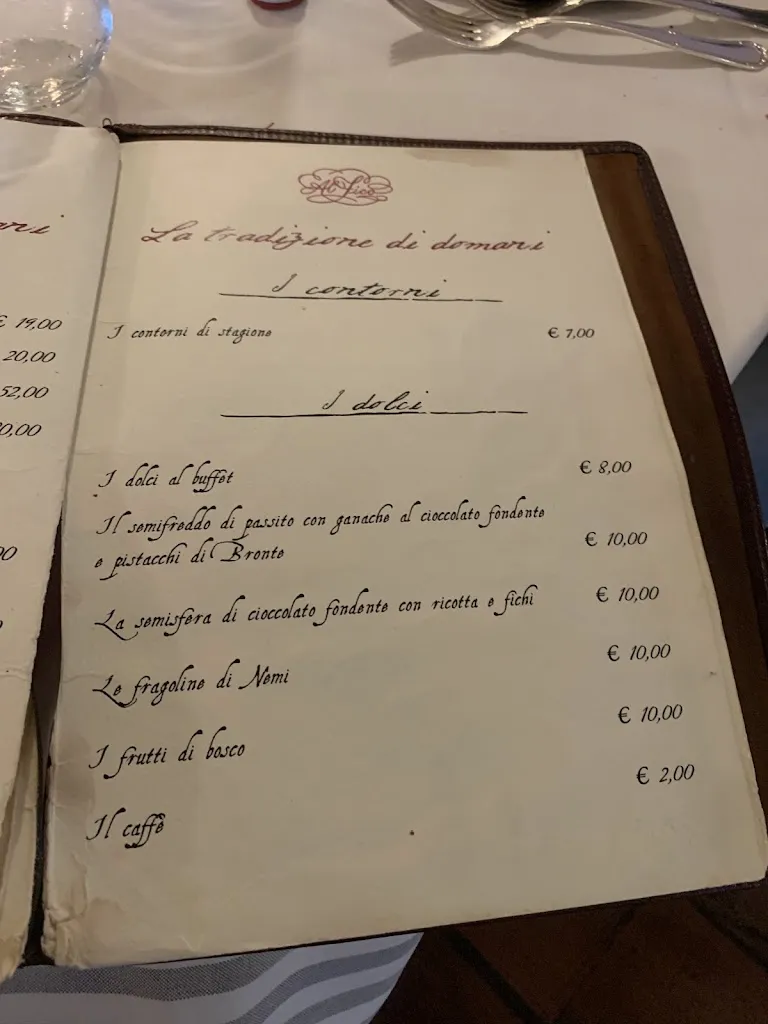 ri
€ 19,00
20,00
52,00
0,00
00
Al Fico
La tradizione di domani
I contorni
I contorni di stagione € 7,00
I dolci
I dolci al buffet € 8,00
Il semifreddo di passito con ganache al cioccolato fondente
e pistacchi di Bronte € 10,00
La semisfera di cioccolato fondente con ricotta e fichi € 10,00
Le fragoline di Nemi € 10,00
I frutti di bosco € 10,00
Il caffè € 2,00